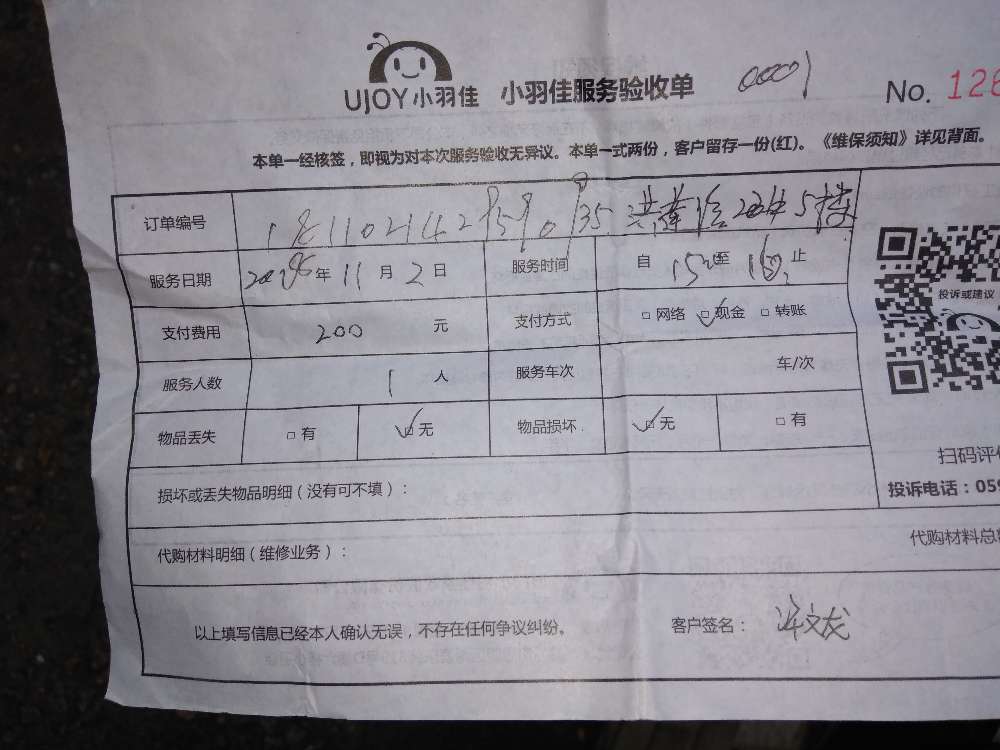 UJOY小羽佳 小羽佳服务验收单 00001 No. 126
本单一经核签，即视为对本次服务验收无异议。本单一式两份，客户留存一份(红)。《维保须知》详见背面。
订单编号
服务日期 年 11 月 2 日 服务时间 自 至 止
投诉或建议
支付费用 200 元 支付方式 □ 网络 □ 现金 □ 转账
服务人数 1 人 服务车次 车/次
物品丢失 □ 有 □ 无 物品损坏 □ 无 □ 有
扫码评
损坏或丢失物品明细（没有可不填）： 投诉电话：059
代购材料明细（维修业务）： 代购材料总
以上填写信息已经本人确认无误，不存在任何争议纠纷。 客户签名： 许文龙